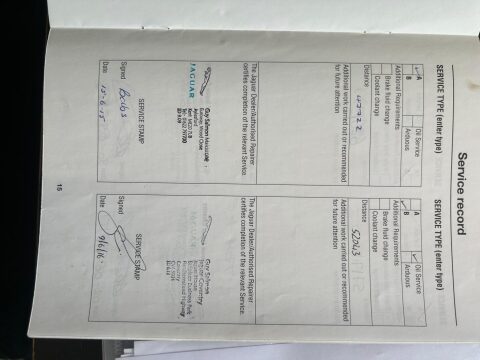 Service record
SERVICE TYPE (enter type)
A
B
Oil Service
Arduous
Additional Requirements
Brake fluid change
Coolant change
Distance
Additional work carried out or recommended
for future attention
The Jaguar Dealer/Authorised Repairer
certifies completion of the relevant Service.
JAGUAR
Guy Salmon
SERVICE STAMP
Signed
Date 15-6-15
SERVICE TYPE (enter type)
A
B
Oil Service
Arduous
Additional Requirements
Brake fluid change
Coolant change
Distance 52043
Additional work carried out or recommended
for future attention
The Jaguar Dealer/Authorised Repairer
certifies completion of the relevant Service.
Guy Salmon
Jaguar Coventry
SERVICE STAMP
Signed
Date 9/6/16
15